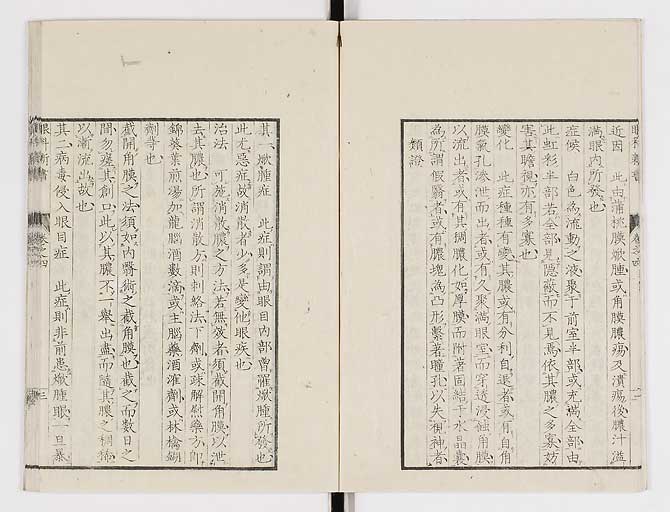 近因 此由蒲桃膜焮腫或角膜膿瘍及潰瘍後膿汁溢
滿眼內所發也
症候 白色為流動之液聚于前室半部或充滿全部由
此虹彩半部若全部見隱蔽而不見焉依其膿之多寡妨
害其瞻視亦有多寡也
變化 此症種種有變其膿或有分利自退者或有自角
膜氣孔滲泄而出者或有久聚滿眼室而穿透浸蝕角膜
以流出者或有其稠膿化如厚膜而附著固結于水晶囊
為所謂假醫者或有膿塊為凸形繫著瞳孔以失視神者
類證
其一焮腫症 此症則謂由眼目內部曾罹焮腫所發也
此尤惡症故消散者少多是變他眼疾也
治法 可施消散膿之方法若無效者須截開角膜以泄
去其膿也所謂消散方則刺絡法下劑或疎解尉藥方即
錦葵葉煎湯加龍腦酒數滴或主腦藥酒淮劑或林檎錮
劑等也
截開角膜之法須如內醫術之截角膜也截之而數日之
間勿癒其創口此以其膿不一舉出盡而隨其膿之稠稀
以漸流出故也
其二病毒侵入眼目症 此症則非前患焮腫眼一旦暴
眼科新書 卷之四 三